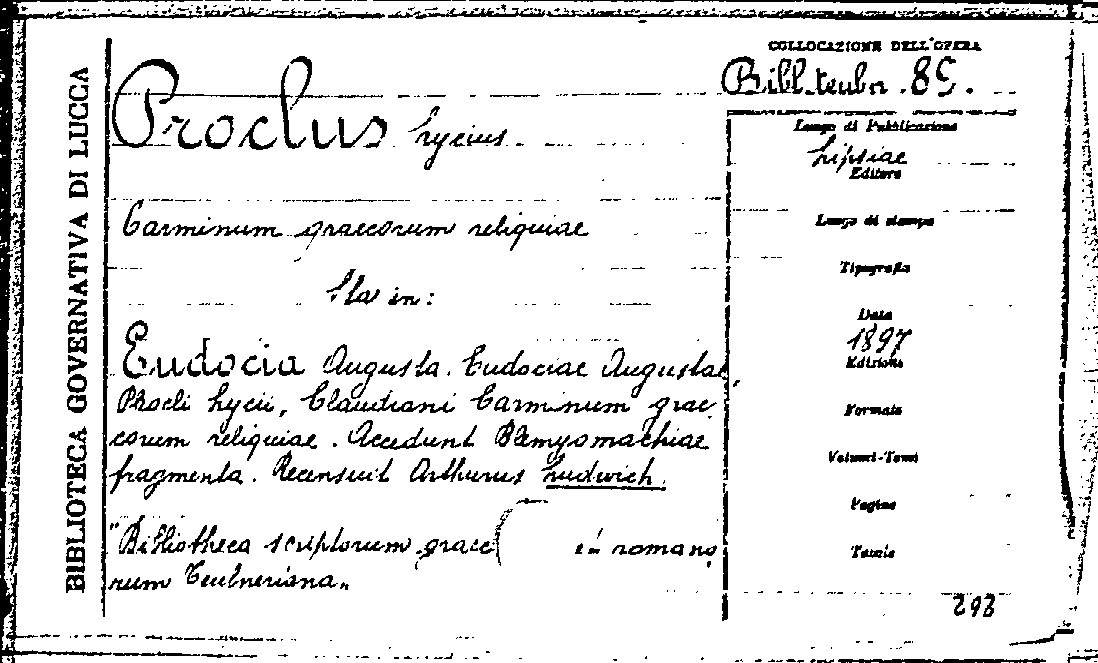 BIBLIOTECA GOVERNATIVA DI LUCCA
COLLOCAZIONE DELL'OPERA
Bibl. teubn. 85.
Proclus Lycius.
Carminum graecorum reliquiae
Sta in:
Eudocia Augusta. Eudociae Augustae,
Procli Lycii, Claudiani Carminum grae-
corum reliquiae. Accedunt Blemyomachiae
fragmenta. Recensuit Arthurus Ludwich.
"Bibliotheca scriptorum graec et romano
rum Teubneriana"
Luogo di Pubblicazione
Lipsiae
Editore
Luogo di stampa
Tipografia
Data
1897
Edizione
Formato
Volumi-Tomi
Pagine
Tavole
293